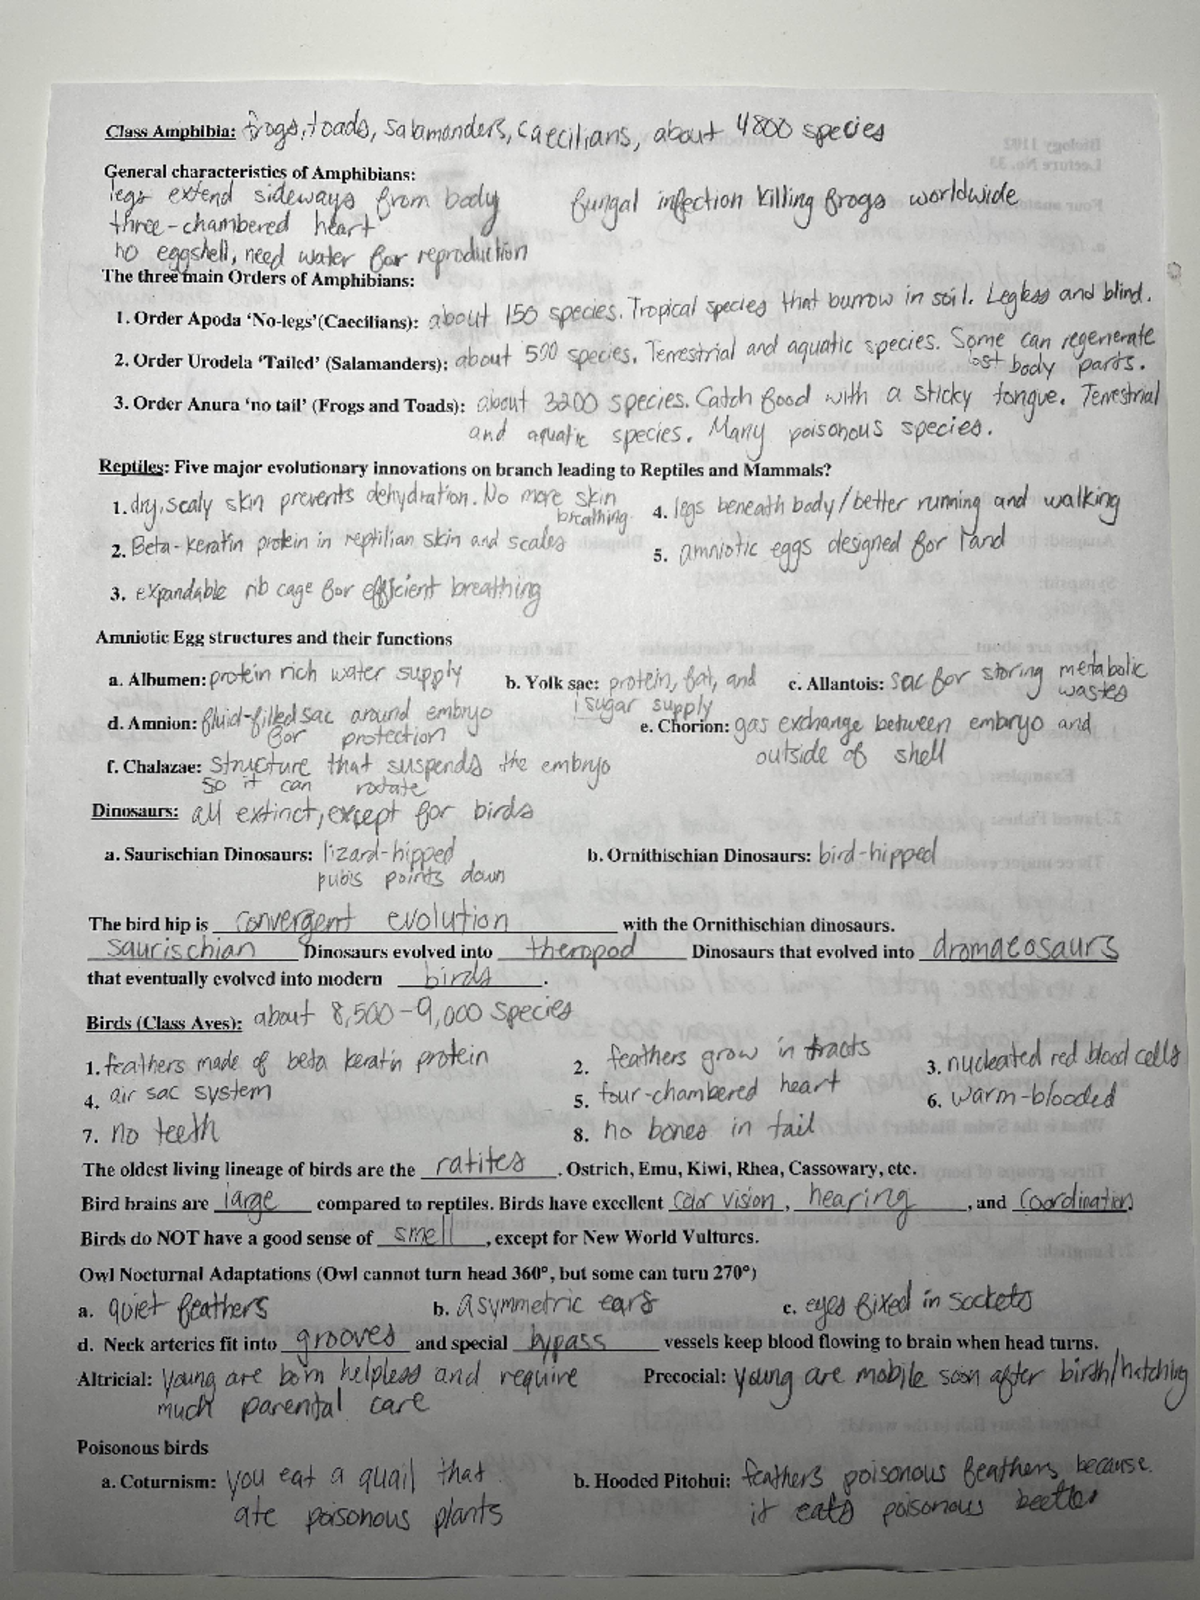 Class Amphibia: frogs, toads, salamanders, caecilians, about 4800 species
General characteristics of Amphibians:
legs extend sideways from body fungal infection killing frogs worldwide
three-chambered heart
no eggshell, need water for reproduction
The three main Orders of Amphibians:
1. Order Apoda 'No-legs'(Caecilians): about 150 species. Tropical species that burrow in soil. Legless and blind.
2. Order Urodela 'Tailed' (Salamanders): about 500 species. Terrestrial and aquatic species. Some can regenerate
lost body parts.
3. Order Anura 'no tail' (Frogs and Toads): about 3200 species. Catch food with a sticky tongue. Terrestrial
and aquatic species. Many poisonous species.
Reptiles: Five major evolutionary innovations on branch leading to Reptiles and Mammals?
1. dry, scaly skin prevents dehydration. No more skin 4. legs beneath body/better running and walking
breathing.
2. Beta-keratin protein in reptilian skin and scales 5. amniotic eggs designed for land
3. expandable rib cage for efficient breathing
Amniotic Egg structures and their functions
a. Albumen: protein rich water supply b. Yolk sac: protein, fat, and c. Allantois: sac for storing metabolic
sugar supply wastes
d. Amnion: fluid-filled sac around embryo e. Chorion: gas exchange between embryo and
for protection outside of shell
f. Chalazae: structure that suspends the embryo
so it can rotate
Dinosaurs: all extinct, except for birds
a. Saurischian Dinosaurs: lizard-hipped b. Ornithischian Dinosaurs: bird-hipped
pubis points down
The bird hip is convergent evolution with the Ornithischian dinosaurs.
saurischian Dinosaurs evolved into theropod Dinosaurs that evolved into dromaeosaurs
that eventually evolved into modern birds.
Birds (Class Aves): about 8,500-9,000 species
1. feathers made of beta keratin protein 2. feathers grow in tracts 3. nucleated red blood cells
4. air sac system 5. four-chambered heart 6. warm-blooded
7. no teeth 8. no bones in tail
The oldest living lineage of birds are the ratites. Ostrich, Emu, Kiwi, Rhea, Cassowary, etc.
Bird brains are large compared to reptiles. Birds have excellent color vision, hearing, and coordination
Birds do NOT have a good sense of smell, except for New World Vultures.
Owl Nocturnal Adaptations (Owl cannot turn head 360º, but some can turn 270º)
a. quiet feathers b. asymmetric ears c. eyes fixed in sockets
d. Neck arteries fit into grooves and special bypass vessels keep blood flowing to brain when head turns.
Altricial: young are born helpless and require Precocial: young are mobile soon after birth/hatching
much parental care
Poisonous birds
a. Coturnism: you eat a quail that b. Hooded Pitohui: feathers poisonous feathers because
ate poisonous plants it eats poisonous beetles